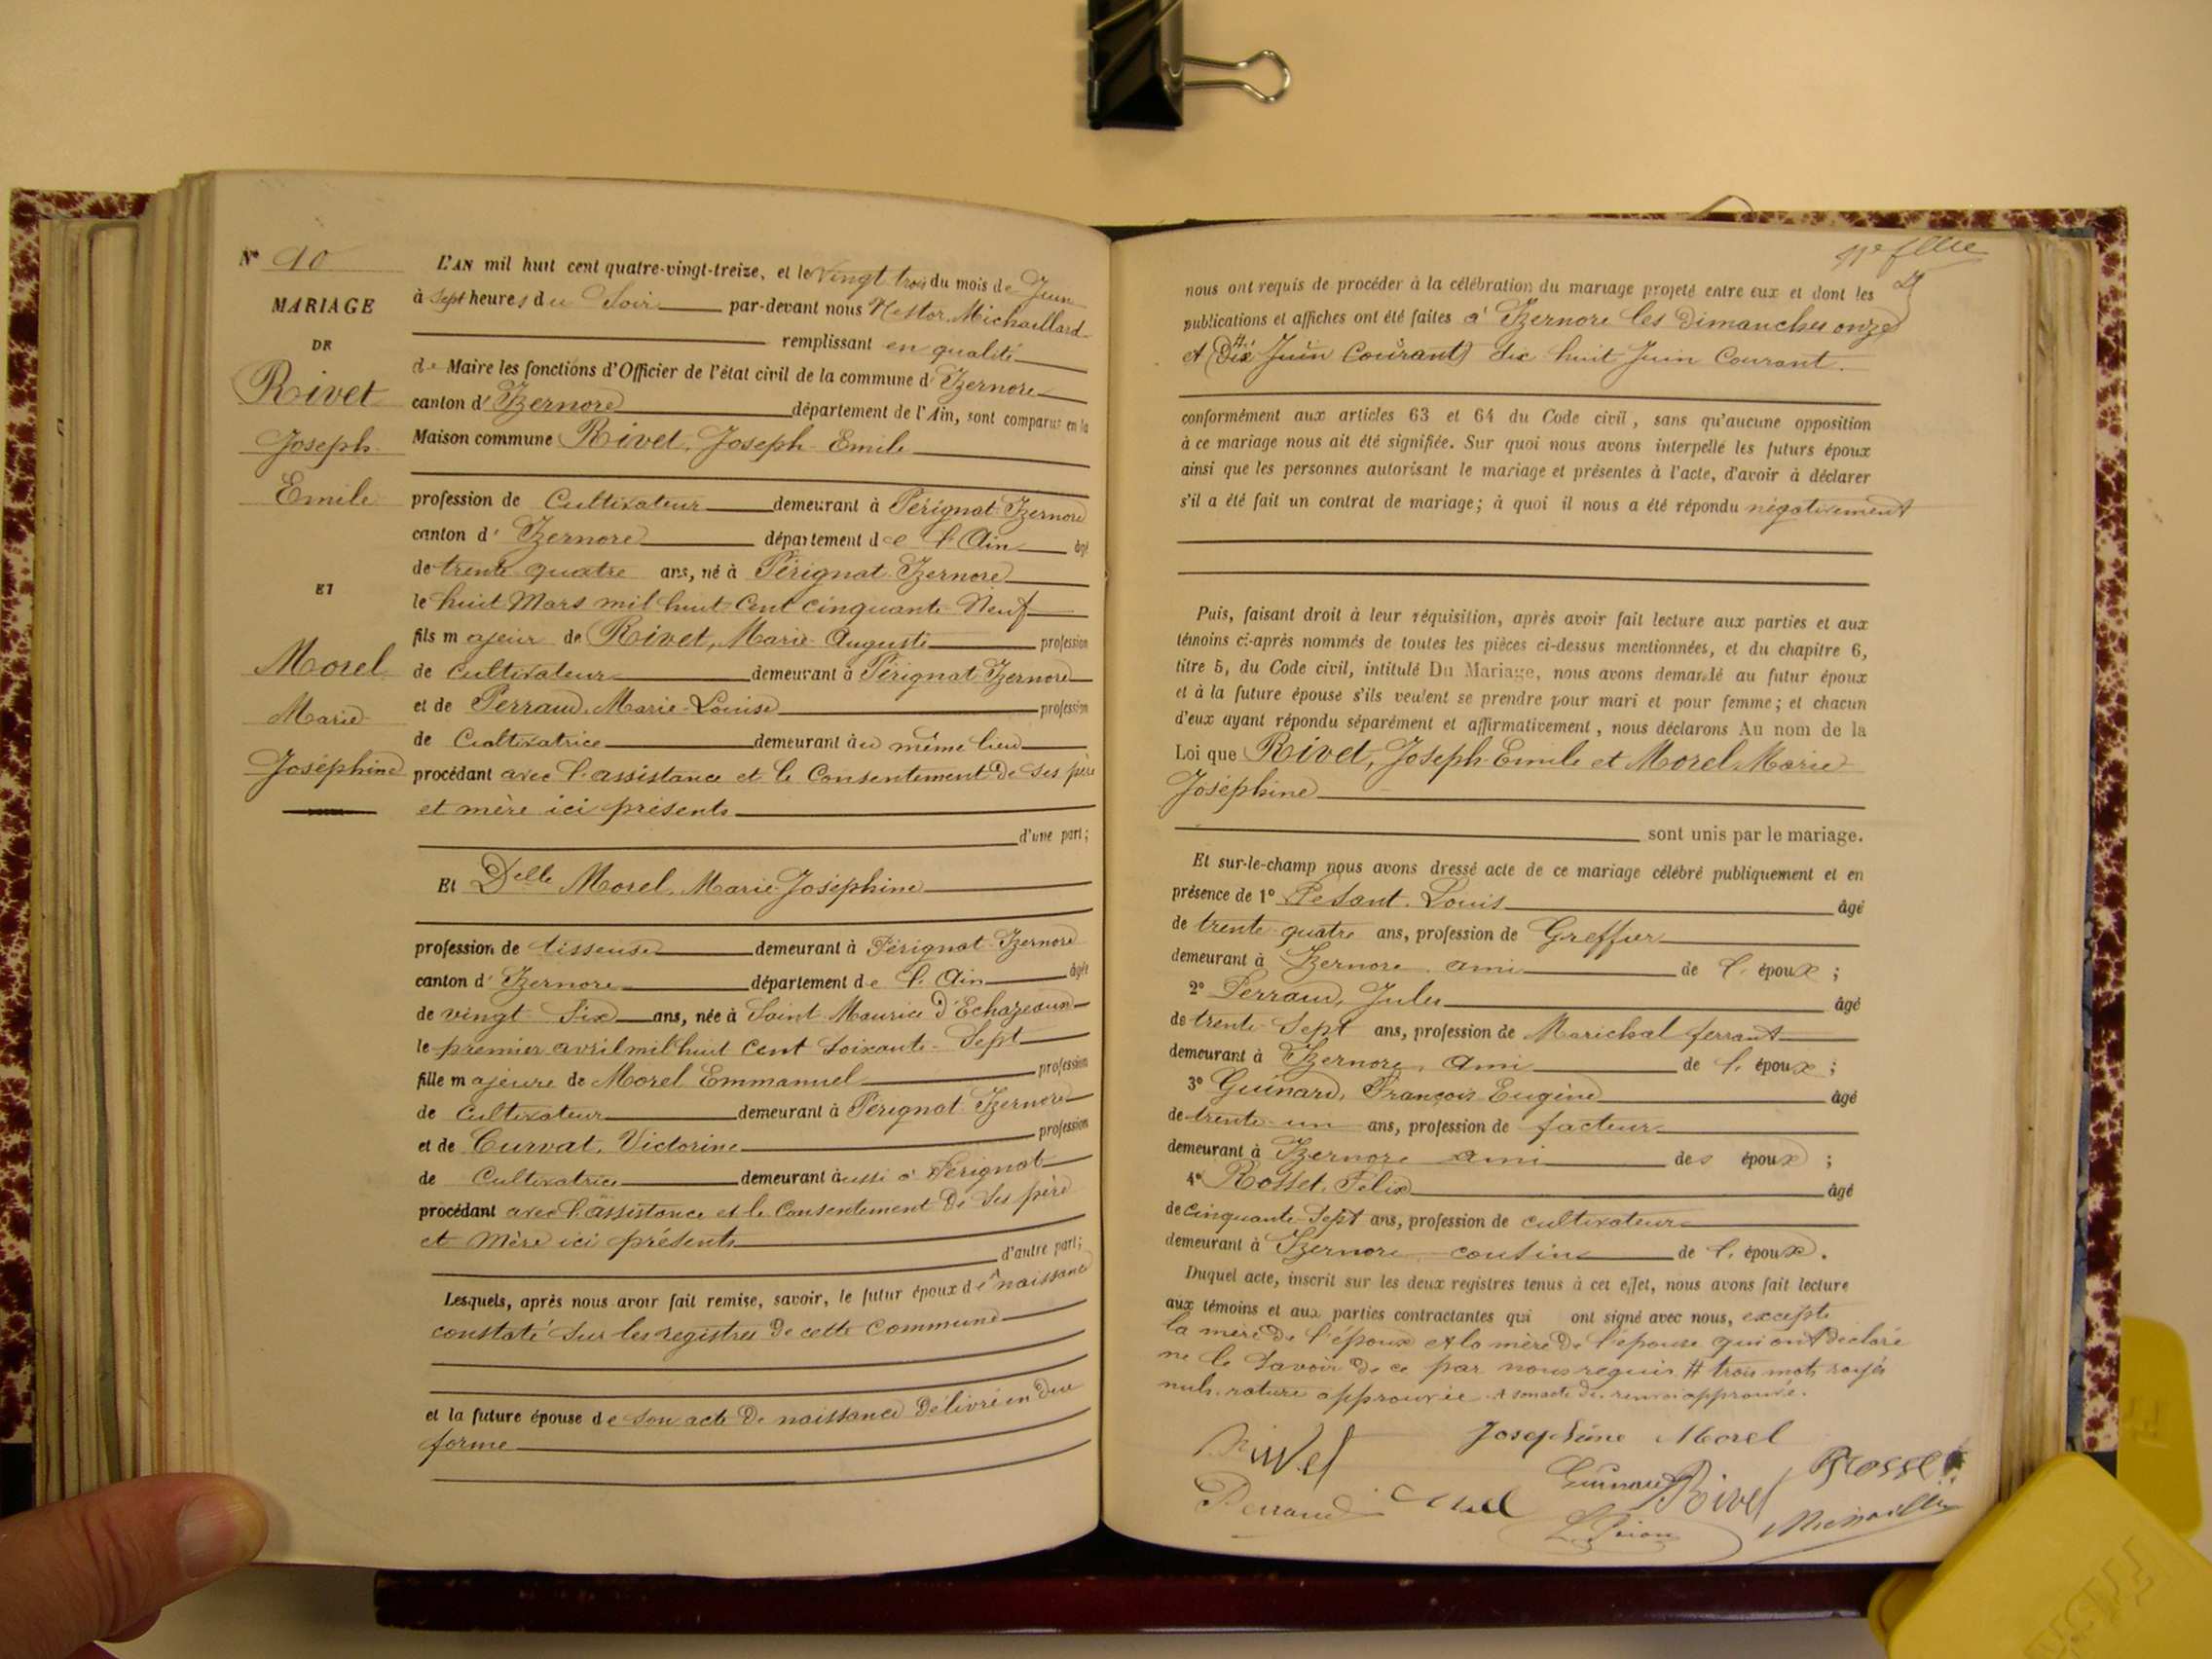 N° 10
MARIAGE
DE
Rivet
Joseph
Emile
ET
Morel
Marie
Joséphine
L'AN mil huit cent quatre-vingt-treize, et le vingt trois du mois de Juin
à sept heures du Soir par-devant nous Nestor Michaillard
remplissant en qualité
de Maire les fonctions d'Officier de l'état civil de la commune d'Izernore
canton d'Izernore département de l'Ain, sont comparus en la
Maison commune Rivet, Joseph Emile
profession de Cultivateur demeurant à Pérignat Izernore
canton d'Izernore département de l'Ain âgé
de trente quatre ans, né à Pérignat Izernore
le huit Mars mil huit Cent cinquante Neuf
fils majeur de Rivet, Marie Auguste profession
de Cultivateur demeurant à Pérignat Izernore
et de Perraud, Marie-Louise profession
de Cultivatrice demeurant au même lieu
procédant avec l'assistance et le Consentement de ses père
et mère ici présents
d'une part;
Et Delle Morel, Marie Joséphine
profession de tisseuse demeurant à Pérignat Izernore
canton d'Izernore département de l'Ain âgée
de vingt Six ans, née à Saint Maurice d'Echazeaux
le premier avril mil huit Cent Soixante Sept
fille majeure de Morel Emmanuel profession
de Cultivateur demeurant à Pérignat Izernore
et de Curvat, Victorine profession
de Cultivatrice demeurant aussi à Pérignat
procédant avec l'assistance et le Consentement de ses père
et Mère ici présents
d'autre part;
Lesquels, après nous avoir fait remise, savoir, le futur époux de naissance
constaté sur les registres de cette Commune
et la future épouse de son acte de naissance délivré en due
forme
11e fllle
nous ont requis de procéder à la célébration du mariage projeté entre eux et dont les
publications et affiches ont été faites à Izernore les Dimanches onze
et (Dix Juin Courant) dix huit Juin Courant.
conformément aux articles 63 et 64 du Code civil, sans qu'aucune opposition
à ce mariage nous ait été signifiée. Sur quoi nous avons interpellé les futurs époux
ainsi que les personnes autorisant le mariage et présentes à l'acte, d'avoir à déclarer
s'il a été fait un contrat de mariage; à quoi il nous a été répondu négativement
Puis, faisant droit à leur réquisition, après avoir fait lecture aux parties et aux
témoins ci-après nommés de toutes les pièces ci-dessus mentionnées, et du chapitre 6,
titre 5, du Code civil, intitulé Du Mariage, nous avons demandé au futur époux
et à la future épouse s'ils veulent se prendre pour mari et pour femme; et chacun
d'eux ayant répondu séparément et affirmativement, nous déclarons Au nom de la
Loi que Rivet, Joseph Emile et Morel Marie
Joséphine
sont unis par le mariage.
Et sur-le-champ nous avons dressé acte de ce mariage célébré publiquement et en
présence de 1° Louis âgé
de trente quatre ans, profession de Greffier
demeurant à Izernore, ami de l'époux;
2° Perraud, Jules âgé
de trente Sept ans, profession de Maréchal ferrant
demeurant à Izernore, Ami de l'époux;
3° Guinard, François Eugène âgé
de trente un ans, profession de facteur
demeurant à Izernore ami des époux;
4° Rosset, Félix âgé
de cinquante Sept ans, profession de cultivateur
demeurant à Izernore cousin de l'époux.
Duquel acte, inscrit sur les deux registres tenus à cet effet, nous avons fait lecture
aux témoins et aux parties contractantes qui ont signé avec nous, excepté
la mère de l'époux et la mère de l'épouse qui ont déclaré
ne le savoir de ce par nous requis # trois mots rayés
nuls. rature approuvée. son acte de renvoi approuvé.
Rivet Josephine Morel
Guinard Rivet Rosset
Perraud